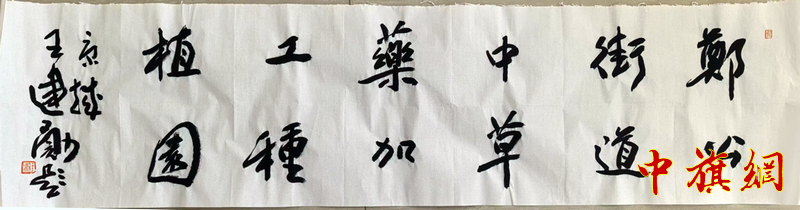 鄭
街道
中草
藥加
工種
植園
京城
王建勛題
中旗網